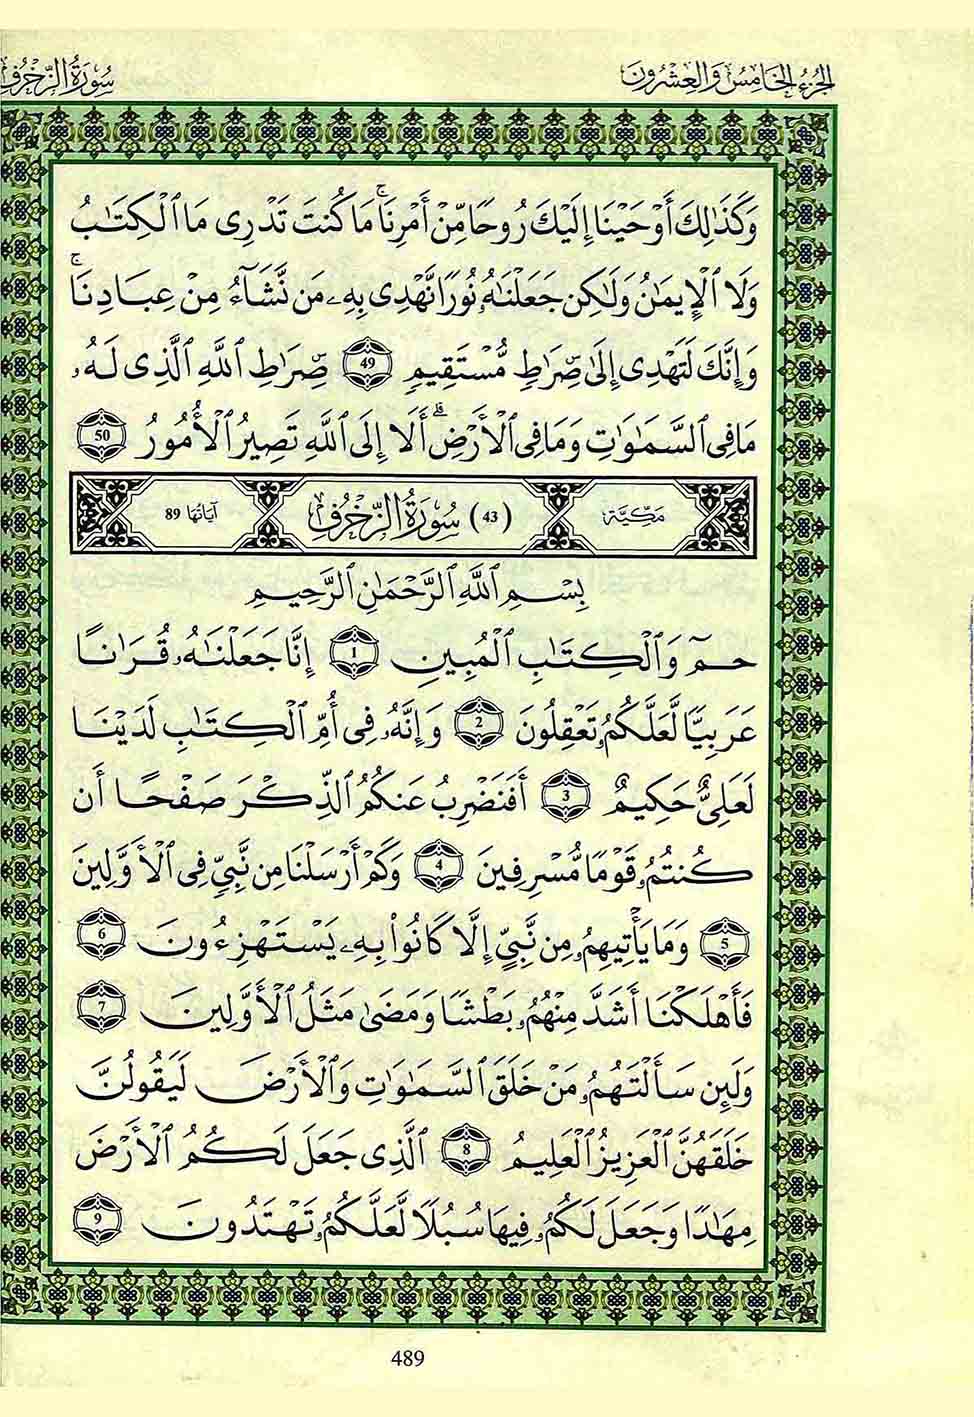 الجُزءُ الخَامِسُ وَالعِشْرُونَ
سُورَةُ الزُّخْرُفِ
وَكَذَٰلِكَ أَوْحَيْنَا إِلَيْكَ رُوحًا مِّنْ أَمْرِنَا ۚ مَا كُنتَ تَدْرِى مَا ٱلْكِتَٰبُ
وَلَا ٱلْإِيمَٰنُ وَلَٰكِن جَعَلْنَٰهُۥ نُورًا نَّهْدِى بِهِۦ مَن نَّشَآءُ مِنْ عِبَادِنَا ۚ
وَإِنَّكَ لَتَهْدِى إِلَىٰ صِرَٰطٍ مُّسْتَقِيمٍ 49 صِرَٰطِ ٱللَّهِ ٱلَّذِى لَهُۥ
مَا فِى ٱلسَّمَٰوَٰتِ وَمَا فِى ٱلْأَرْضِ ۗ أَلَا إِلَى ٱللَّهِ تَصِيرُ ٱلْأُمُورُ 50
مَكِّيَّة (43) سُورَةُ الزُّخْرُفِ آيَاتُهَا 89
بِسْمِ ٱللَّهِ ٱلرَّحْمَٰنِ ٱلرَّحِيمِ
حمٓ وَٱلْكِتَٰبِ ٱلْمُبِينِ 1 إِنَّا جَعَلْنَٰهُۥ قُرَانًا
عَرَبِيًّا لَّعَلَّكُمُۥ تَعْقِلُونَ 2 وَإِنَّهُۥ فِى أُمِّ ٱلْكِتَٰبِ لَدَيْنَا
لَعَلِىٌّ حَكِيمٌ 3 أَفَنَضْرِبُ عَنكُمُ ٱلذِّكْرَ صَفْحًا أَن
كُنتُمُۥ قَوْمًا مُّسْرِفِينَ 4 وَكَمْ أَرْسَلْنَا مِن نَّبِىٍّ فِى ٱلْأَوَّلِينَ
5 وَمَا يَأْتِيهِمُۥ مِن نَّبِىٍّ إِلَّا كَانُوا۟ بِهِۦ يَسْتَهْزِءُونَ 6
فَأَهْلَكْنَا أَشَدَّ مِنْهُمُۥ بَطْشًا وَمَضَىٰ مَثَلُ ٱلْأَوَّلِينَ 7
وَلَئِن سَأَلْتَهُمُۥ مَنْ خَلَقَ ٱلسَّمَٰوَٰتِ وَٱلْأَرْضَ لَيَقُولُنَّ
خَلَقَهُنَّ ٱلْعَزِيزُ ٱلْعَلِيمُ 8 ٱلَّذِى جَعَلَ لَكُمُ ٱلْأَرْضَ
مِهَٰدًا وَجَعَلَ لَكُمُۥ فِيهَا سُبُلًا لَّعَلَّكُمُۥ تَهْتَدُونَ 9
489